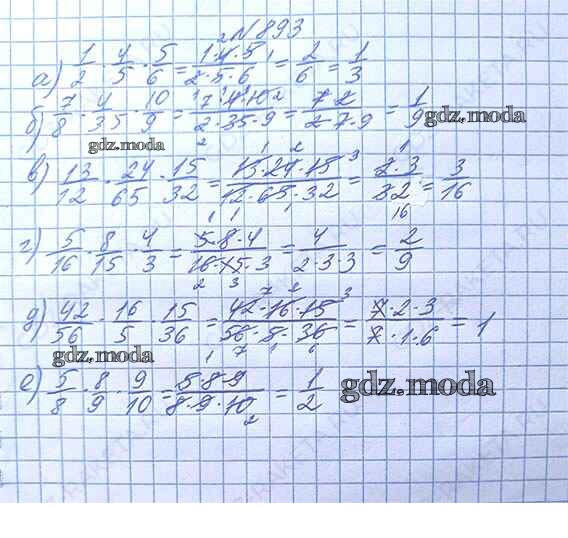 №893
а) 1/2 · 4/5 · 5/6 = 1·4·5/2·5·6 = 2/6 = 1/3
б) 7/8 · 4/35 · 10/9 = 7·4·10/2·35·9 = 7·2/2·7·9 = 1/9
gdz.moda
gdz.moda
в) 13/12 · 24/65 · 15/32 = 13·24·15/12·65·32 = 2·3/32 = 3/16
г) 5/16 · 8/15 · 4/3 = 5·8·4/16·15·3 = 4/2·3·3 = 2/9
д) 42/56 · 16/5 · 15/36 = 42·16·15/56·5·36 = 7·2·3/7·1·6 = 1
gdz.moda
е) 5/8 · 8/9 · 9/10 = 5·8·9/8·9·10 = 1/2
gdz.moda